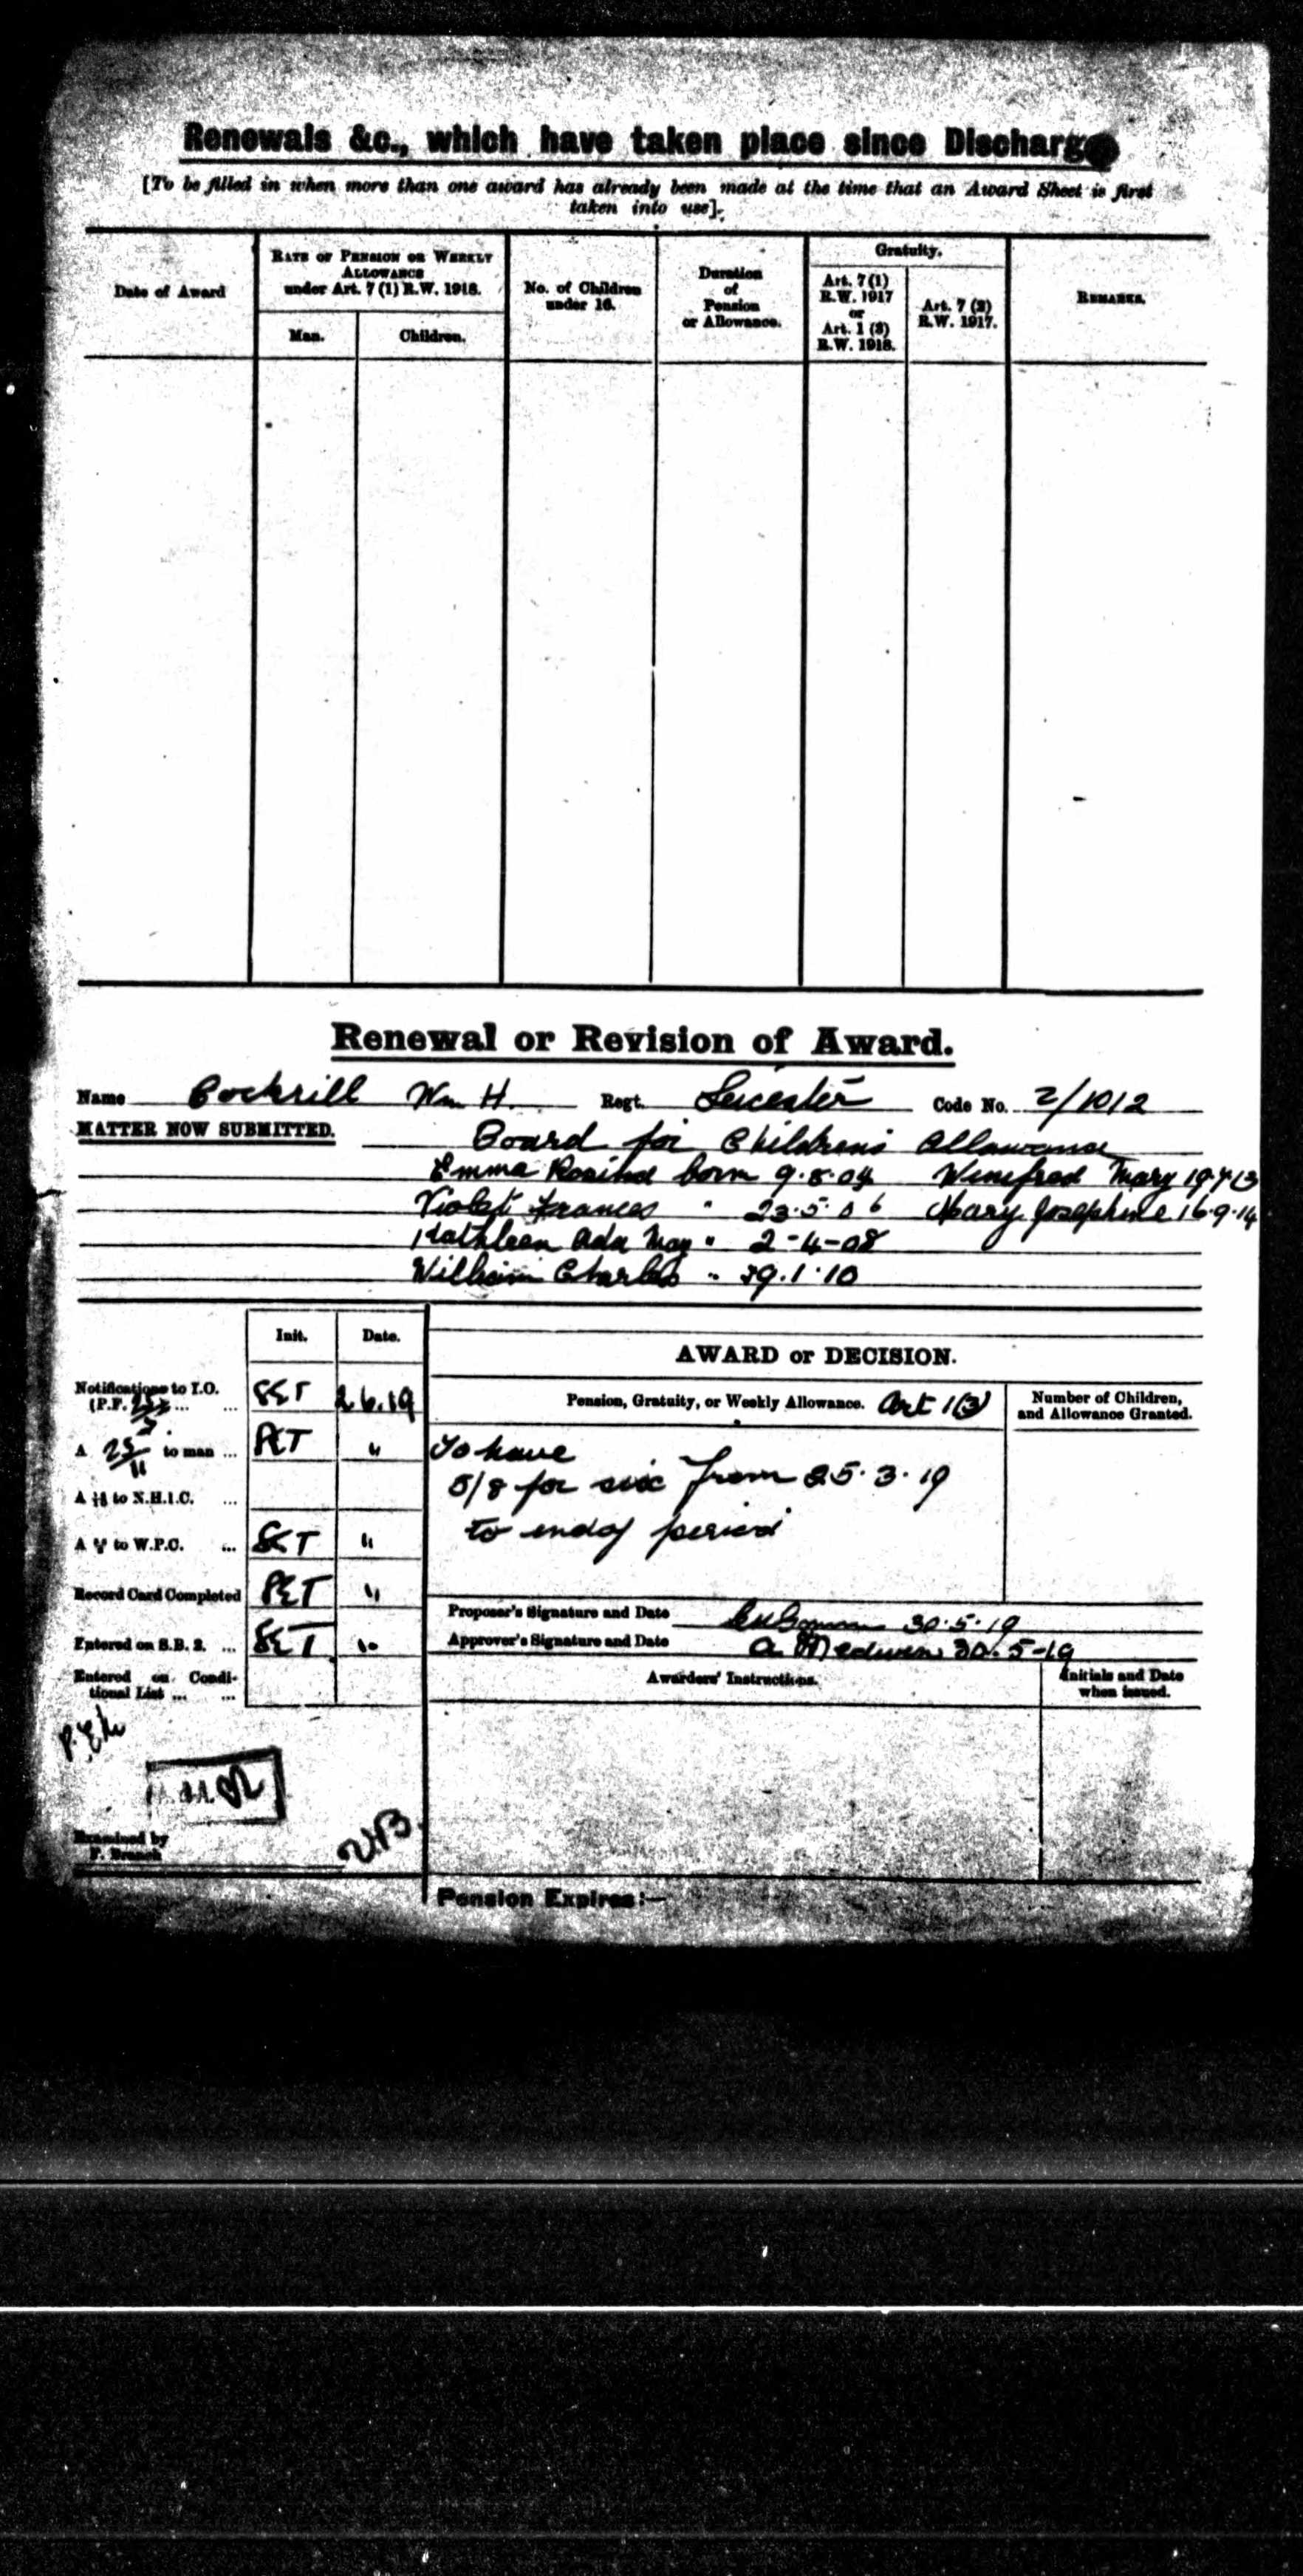 Renewals &c., which have taken place since Discharge
[To be filled in when more than one award has already been made at the time that an Award Sheet is first
taken into use].
Date of Award
RATE OF PENSION OR WEEKLY
ALLOWANCE
under Art. 7 (1) R.W. 1918.
Man.
Children.
No. of Children
under 16.
Duration
of
Pension
or Allowance.
Gratuity.
Art. 7 (1)
R.W. 1917
or
Art. 1 (3)
R.W. 1918.
Art. 7 (2)
R.W. 1917.
REMARKS.
Renewal or Revision of Award.
Name Cockrill Wm H. Regt. Leicester Code No. 2/1012
MATTER NOW SUBMITTED. Board for Childrens Allowance
Emma Rosind born 9.8.04 Winefred Mary 19.7.13
Violet Frances " 23.5.06 Mary Josephine 16.9.14
Kathleen Ada May " 2-4-08
William Charles " 29.1.10
Init.
Date.
AWARD or DECISION.
Notifications to I.O.
(P.F. ... ...
2.6.19
Pension, Gratuity, or Weekly Allowance. Art 1(3)
Number of Children,
and Allowance Granted.
A 25/11 to man ... PET "
To have
5/8 for six from 25.3.19
to end of period
A to N.H.I.C. ...
A to W.P.C. ... "
Record Card Completed PET "
Entered on S.B. 2. ... "
Entered on Condi-
tional List ... ...
Proposer's Signature and Date 30.5.19
Approver's Signature and Date 30.5-19
Awarders' Instructions.
Initials and Date
when issued.
Examined by
F. Branch
Pension Expires:—